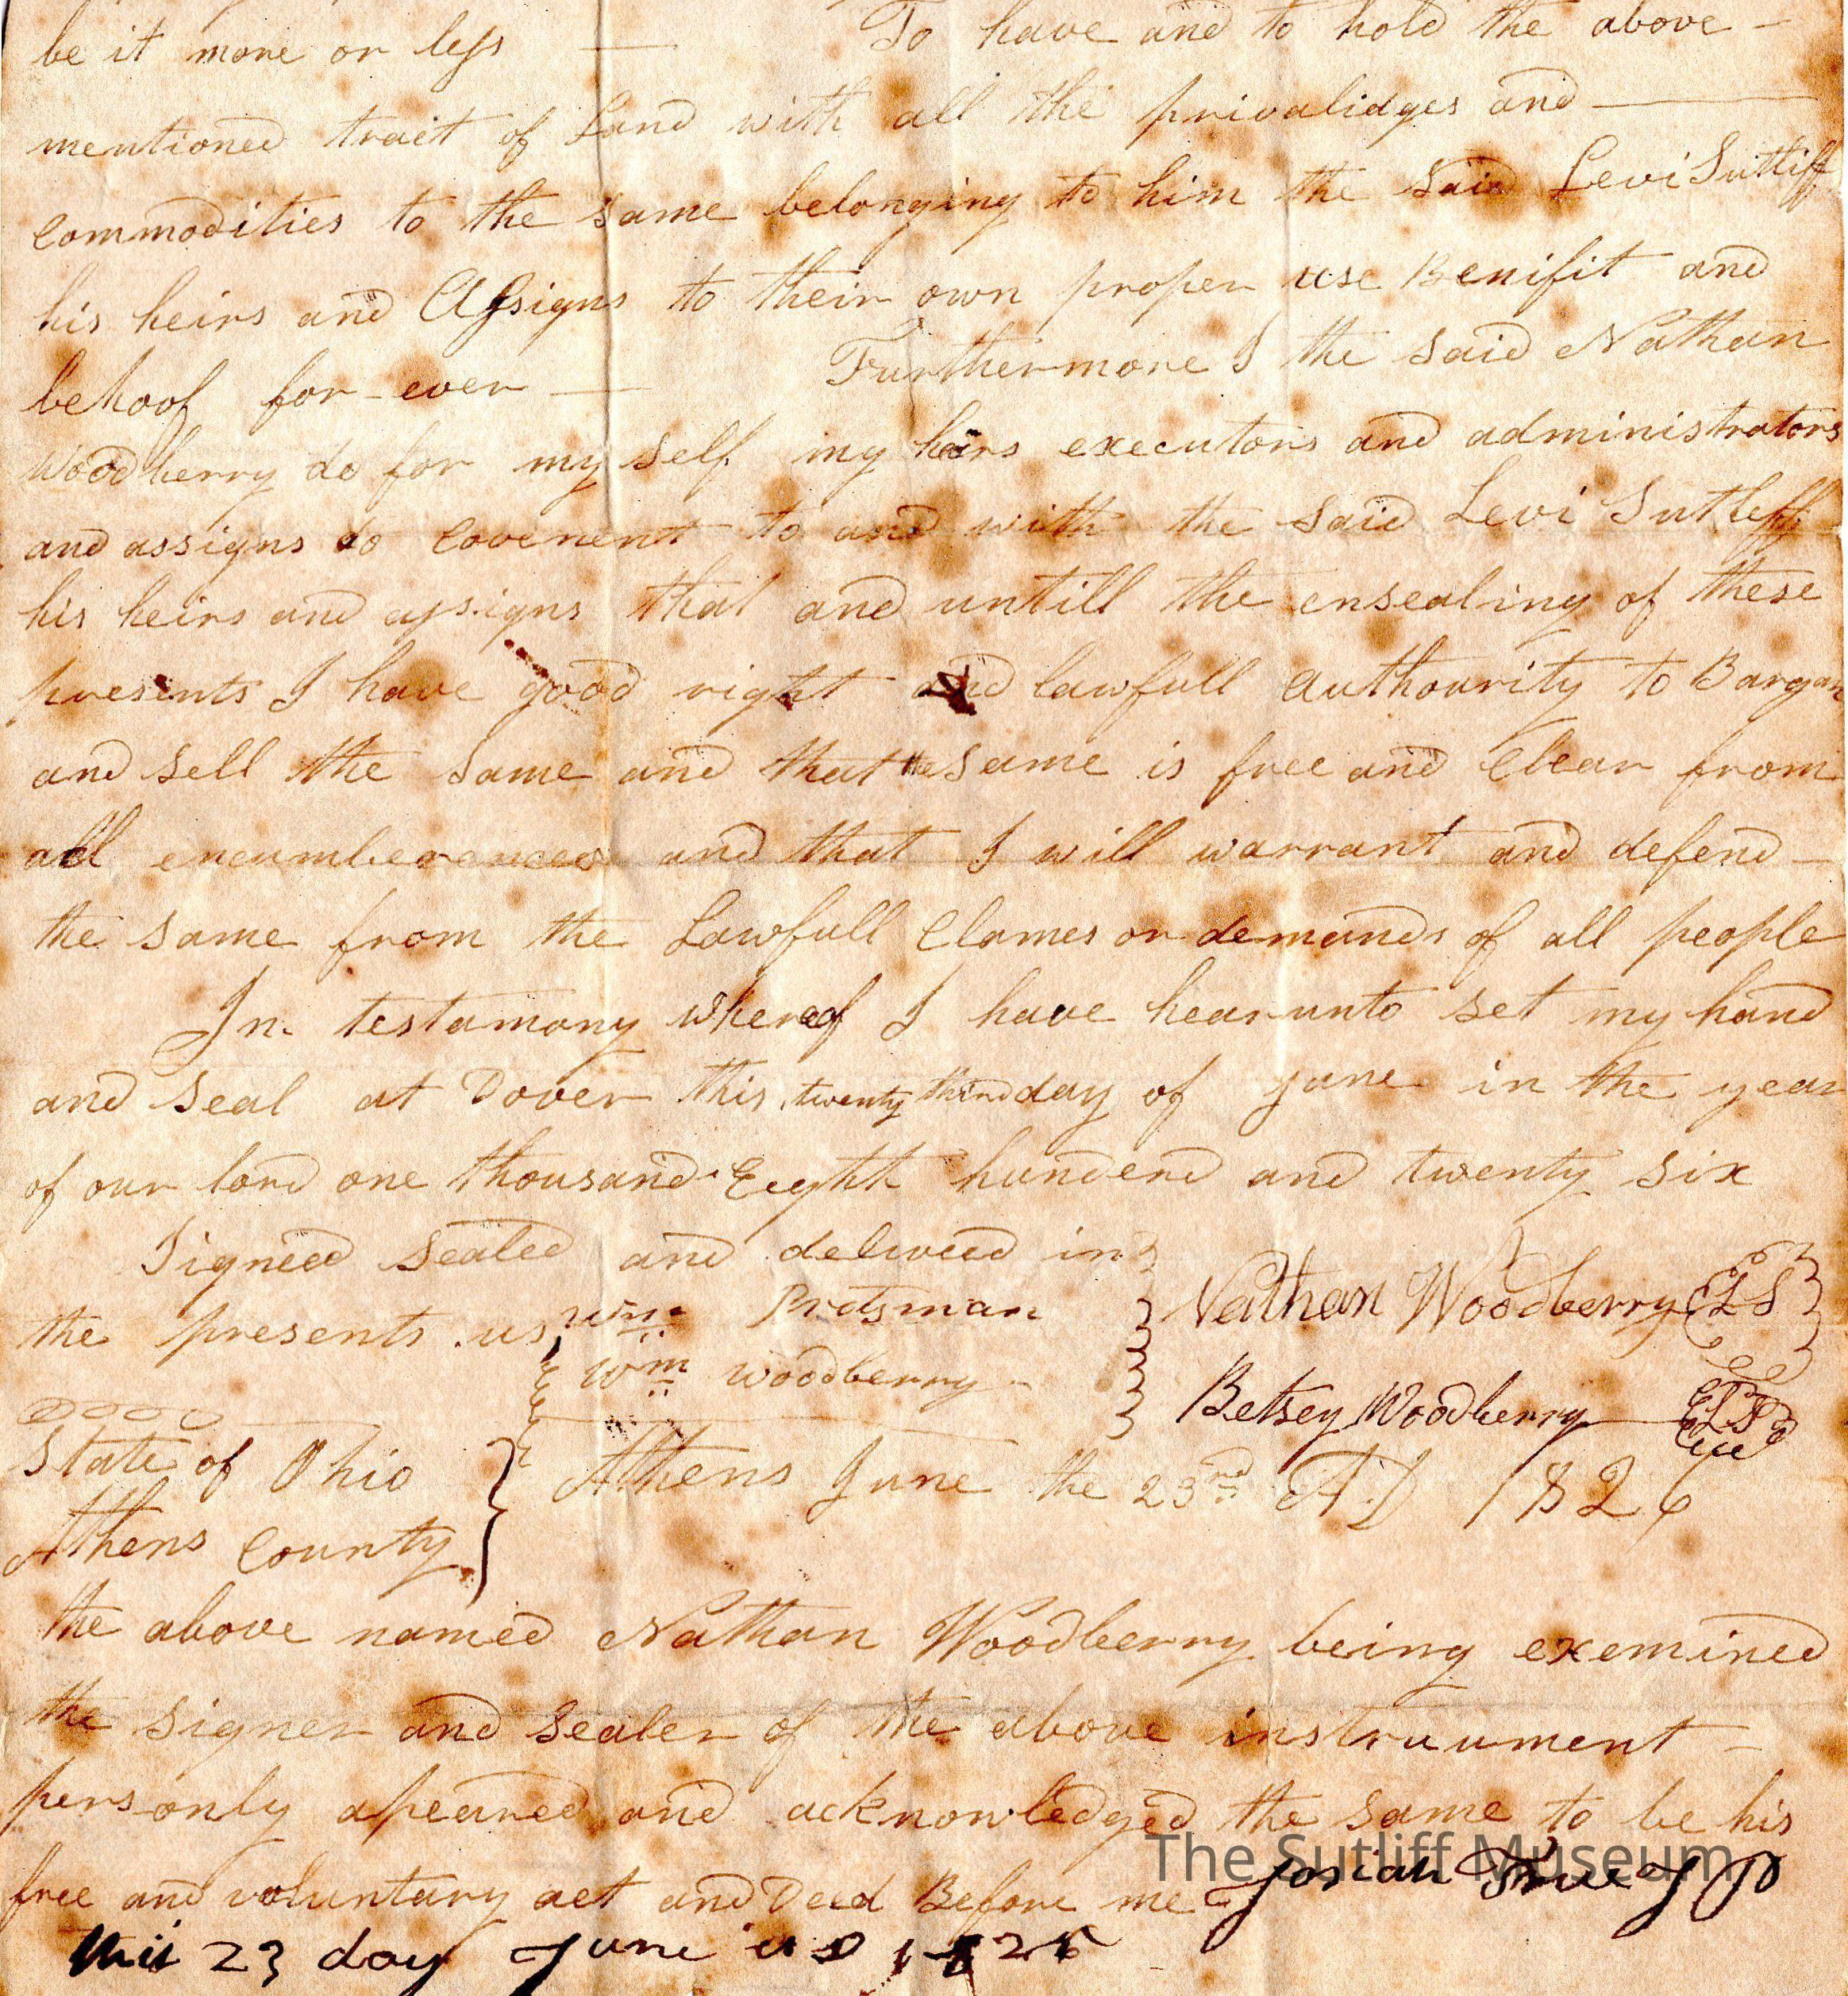 be it more or less — To have and to hold the above —
mentioned trait of Land with all the privalidges and —
commodities to the same belonging to him the said Levi Sutliff
his heirs and Assigns to their own proper use Benifit and
behoof for-ever — Furthermore I the said Nathan
Woodberry do for my self my heirs executors and administrators
and assigns do Covenent to and with the said Levi Sutleff
his heirs and assigns that and untill the ensealing of these
presents I have good right and lawfull authourity to Bargan
and sell the same and that the same is free and Clear from
all encumberences and that I will warrant and defend —
the same from the Lawfull Clames or demands of all people
In testamony whereof I have hearunto set my hand
and seal at Dover this twenty third day of June in the year
of our lord one thousand Eeight hunderd and twenty six
Signed sealed and deliveed in
the presents us Wm Protsman Nathan Woodberry LS
Wm Woodberry Betsey Woodberry LS
State of Ohio
Athens County Athens June the 23rd AD 1826
the above named Nathan Woodberry being exemined
the signer and sealer of the above instruument —
personly apeared and acknowledged the same to be his
free and voluntary act and Deed Before me Josiah True J P
this 23 day June AD 1826
The Sutliff Museum